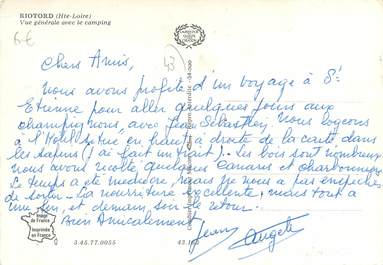 RIOTORD (Hte-Loire)
Vue générale avec le camping
Chers Amis,
43
Nous avons profité d'un voyage à St
Etienne pour aller quelques jours aux
champignons, avec Sébastien. Nous logeons
à l'Hôtel en haut à droite de la carte dans
les sapins (j'ai fait un trait). Les bois sont nombreux
nous avons récolté quelques Canaris et charbonniers
Le temps a été médiocre, mais ne nous a pas empêché
de sortir. La nourriture excellente, mais tout a
une fin, et demain, sera le retour.
Bien Amicalement
Jean
Angèle
Image
de France
Imprimée
en France
3.45.77.0055
43.163